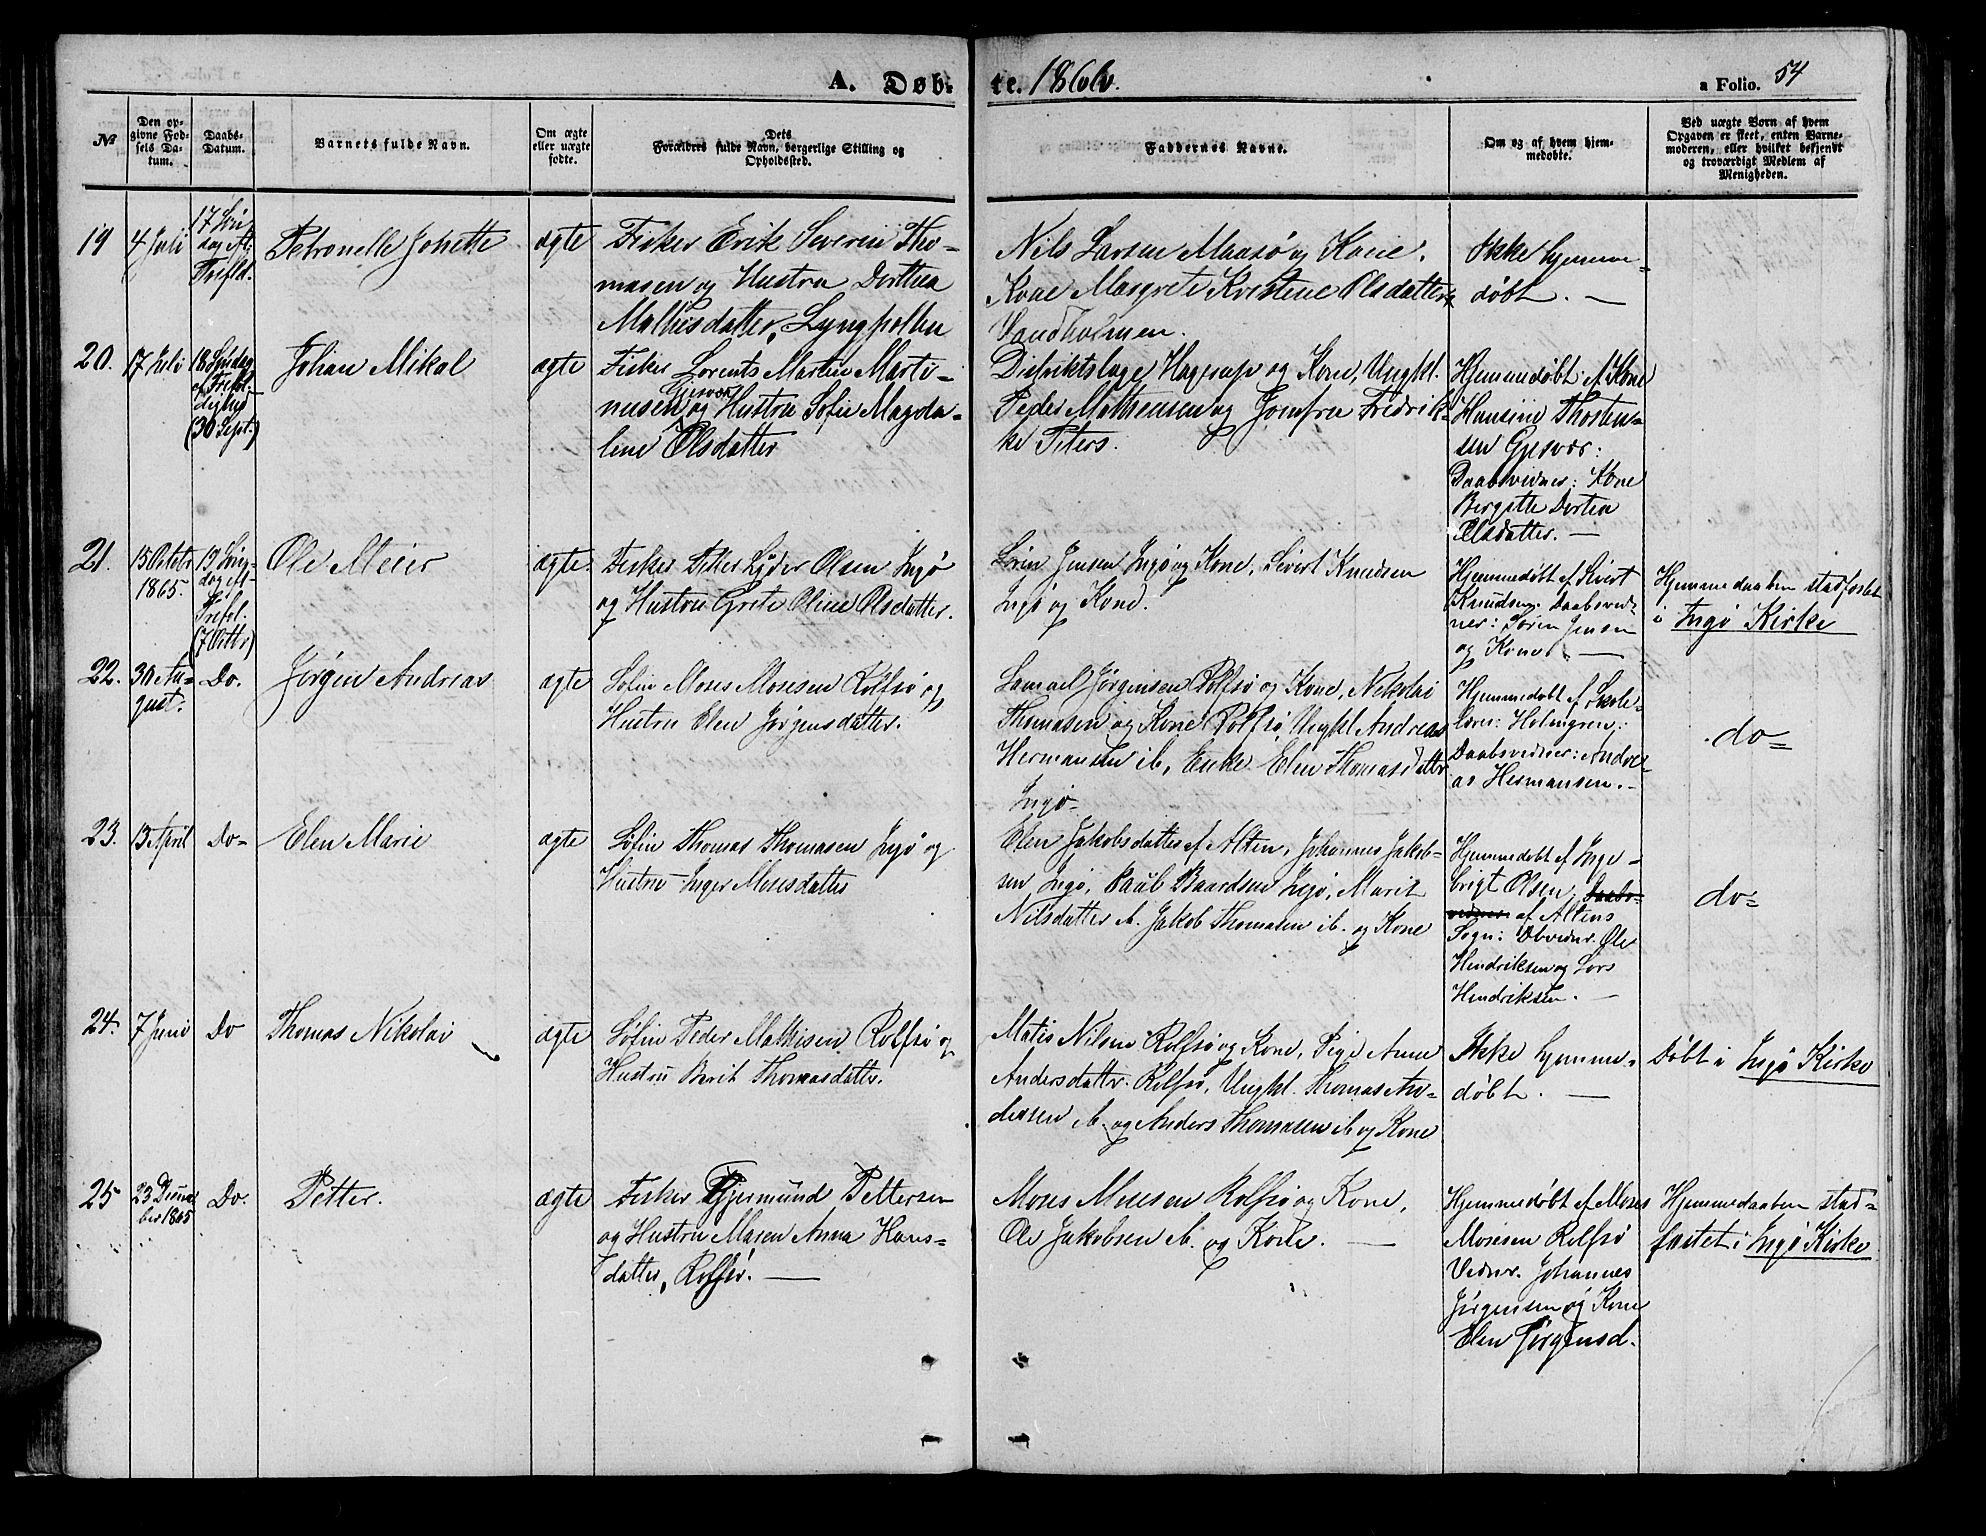 A. Døb-
te. 1866.
a Folio. 54
№
Den op-
givne Fød-
sels Da-
tum.
Daabs-
Datum.
Barnets fulde Navn.
Om ægte
eller uægte
fødte.
Dets
Forældres fulde Navn, borgerlige Stilling og
Opholdssted.
Faddernes Navne.
Om og af hvem hjem-
medøbte.
Ved uægte Børn af hvem
Opgaven er skeet, enten Barne-
moderen, eller hvilket bekjendt
og troværdigt Medlem af
Menigheden.
19
4 Juli
17 Søn
dag Af.
Trefld.
Petronelle Johette
ægte
Fisker Erik Severin Tho-
masen og Hustru Dorthea
Mathisdatter, Lyngpollen
Nils Larsen Maasø og Kone,
Kone Margrete Kristene Olsdatter
Sandholmen.
Ikke hjemme-
døbt. —
20.
17 Juli
18 Søndag
ef Trefol-
dighed
(30 Sept.)
Johan Mikal
ægte
Fisker Lorents Martin Marti-
nusen Gjesvær og Hustru Sofie Magda-
lene Olsdatter
Distriktslæge Hagerup og Kone, Ungkl.
Peder Mathensen og Jomfru Fredrik-
ke Peters.
Hjemmedøbt: af Kone
Hansine Thosten-
sen Gjesvær:
Daabsvidner: Kone
Bergitte Dortea
Olsdatter. —
21.
15 Octobr
1865.
19 Søn-
dag Af-
Trefol.
(7 Octbr)
Ole Meier
ægte
Fisker Peter Lyder Olsen Ingø
og Hustru Grete Oline Olsdatter.
Sørin Jensen Ingø og Kone, Sivert Knudsen
Ingø og Kone.
Hjemmedøbt af Sivert
Knudsen. Daabsvid-
ner: Søren Jensen
og Kone. —
Hjemmedaaben stadfæstet
i Ingø Kirke
22.
30 Au-
gust.
Do.
Jørgen Andreas
ægte
Søfin Moses Mosesen Rolfsø og
Hustru Elen Jørgensdatter.
Samuel Jørgensen Rolfsø og Kone, Nikolai
Thomasen og Kone Rolfsø, Ungkl Andreas
Hermansen ib, Enke Elen Thomasdattr
Ingø
Hjemmedøbt af Skole-
lærer: Holmgren:
Daabsvidner: Andre-
as Hermansen. -
do-
23.
13 April
Do-
Elen Marie
ægte
Søfin Thomas Thomasen Ingø og
Hustru Inger Mosesdatter
Elen Jakobsdatter af Alten, Johannes Jakob-
sen Ingø, Paul Baardsen Ingø, Marit
Nilsdatter ib. Jakob Thomasen ib. og Kone
Hjemmedøbt af Inge-
brigt Olsen, Daabs-
vidner af Altens
Sogn: Dbvidnr. Ole
Hendriksen og Lars
Hendriksen. —
do-
24.
7 Juni
Do
Thomas Nikolai
ægte
Søfin Peder Mathisen Rolfsø og
Hustru Berit Thomasdatter.
Matis Nilsen Rolfsø og Kone, Pige Anne
Andersdattr. Rolfsø, Ungkl. Thomas An-
dersen ib. og Anders Thomasen ib og Kone
Ikke hjemme-
døbt. —
Døbt i Ingø Kirke
25
23 Decem
ber 1865
Do.
Petter.
ægte
Fisker Gjermund Pettersen
og Hustru Maren Anna Hans-
datter, Rolfsø. —
Moses Mosesen Rolfsø og Kone,
Ole Jakobsen ib. og Kone. —
Hjemmedøbt af Moses
Mosesen Rolfsø
Vidnr. Johannes
Jørgensen og Kone
Elen Jørgensd.
Hjemmedaaben stad-
fæstet i Ingø Kirke